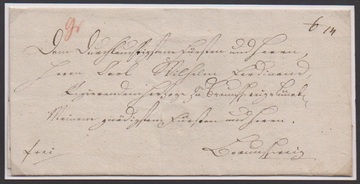 6 14
Dem Durchlauchtigsten Fürsten und Herrn,
Herrn Carl Wilhelm Ferdinand,
Regierenden Herzog zu Braunschweig Lüneb.
Meinem gnädigsten Fürsten und Herrn.
frei Braunschweig